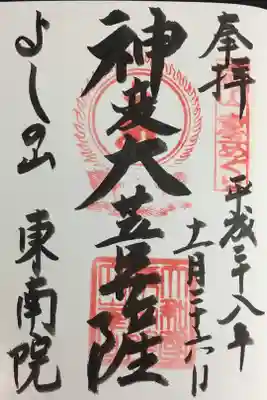 奉拝
平成二十八年
十一月二十六日
神変大菩薩
よしの山 東南院